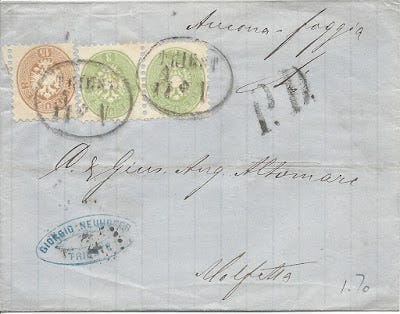 Ancona-foggia
TRIEST
TRIEST
P.D.
A. & Gius. Aug. Altomare
GIORGIO NEUHOFER
TRIESTE
Molfetta
1.70